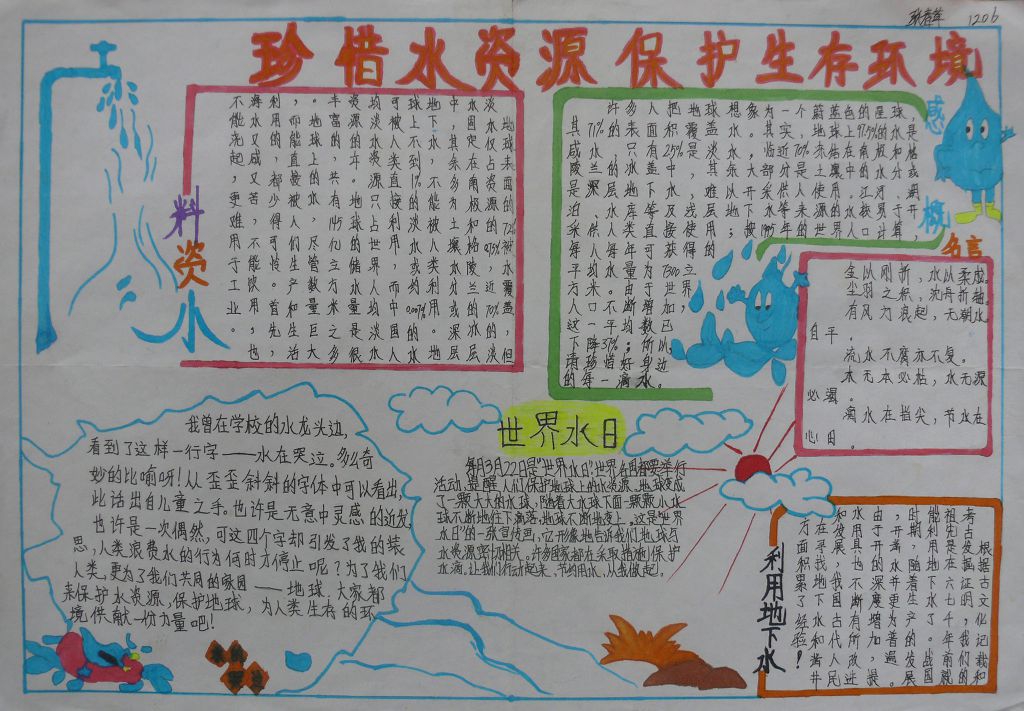 张春苹 1206
珍惜水资源 保护生存环境
水资料
地球表面的72%被水覆盖，但
淡水仅占资源的0.5%，近70%的淡
水固定在南极和格陵兰的冰层
中，其余多为土壤水分或深层
地下水，不能被人类利用。地
球上不到1%的淡水或约0.007%的水
可被人类直接利用，而中国人
均淡水资源只占世界人均淡水
资源的地球的储水量是很
丰富的，共有145亿立方米之多
。地球上的水，尽管数量巨大
，而能直接被人们生产和生活
利用的，却少得可怜。首先，
海水又咸又苦，不能饮用，
不能浇更难用于工业。也
感概
许多人把地球想象为一个蔚蓝色的星球，
其71%的表面积覆盖水。其实，地球上97.5%的水是
咸水，只有2.5%是淡水。临近70%冻结在南极和格
陵兰的冰盖中，其余大部分是土壤中的水分或
是深层地下水，难以开采供人使用。江河、湖
泊、水库等及浅层地下水等来源的水较易于开
采供人类直接使用；按1995年的世界人口计算，
每人每年可获得的
平均水量为7300立
方米。由于世界
人口不断增加，
这一平均数已
下降37%；所以
请珍惜好身边
的每一滴水。
名言
金以刚折，水以柔成。
尘羽之积，沈舟折轴。
有风方浪起，无潮水
自平。
流水不腐亦不复。
木无本必枯，水无源
必竭。
滴水在指尖，节水在
心田。
我曾在学校的水龙头边，
看到了这样一行字——水在哭泣。多么奇
妙的比喻呀！从歪歪斜斜的字体中可以看出，
此话出自儿童之手。也许是无意中灵感的迸发，
也许是一次偶然，可这四个字却引发了我的
思，人类浪费水的行为何时才停止呢？为了我们
人类，更为了我们共同的家园——地球，大家都
来保护水资源，保护地球，为人类生存的环
境供献一份力量吧！
世界水日
每月3月22日是“世界水日”世界各国都要举行
活动，提醒人们保护地球上的水资源。地球变成
了一颗大大的水球，随着大水球下面一颗颗小水
球不断地往下滴落，地球不断地变上，这是“世界
水日”的一张宣传画，它形像地告诉我们，地球与
水资源密切相关。许多国家都在采取措施，保护
水滴，让我们行动起来，节约用水，从我做起。
利用地下水
根据古文化记载和
考古发掘证明，我们的
祖先在六七千年前就
能利用地下水了。战国
时期，随着生产的发展
，开凿水井更普遍。
由于井的深度增加，提
水用具也不断有所改进
和发展，我国古代人民
在寻找地下水和凿井
方面积累了经验！